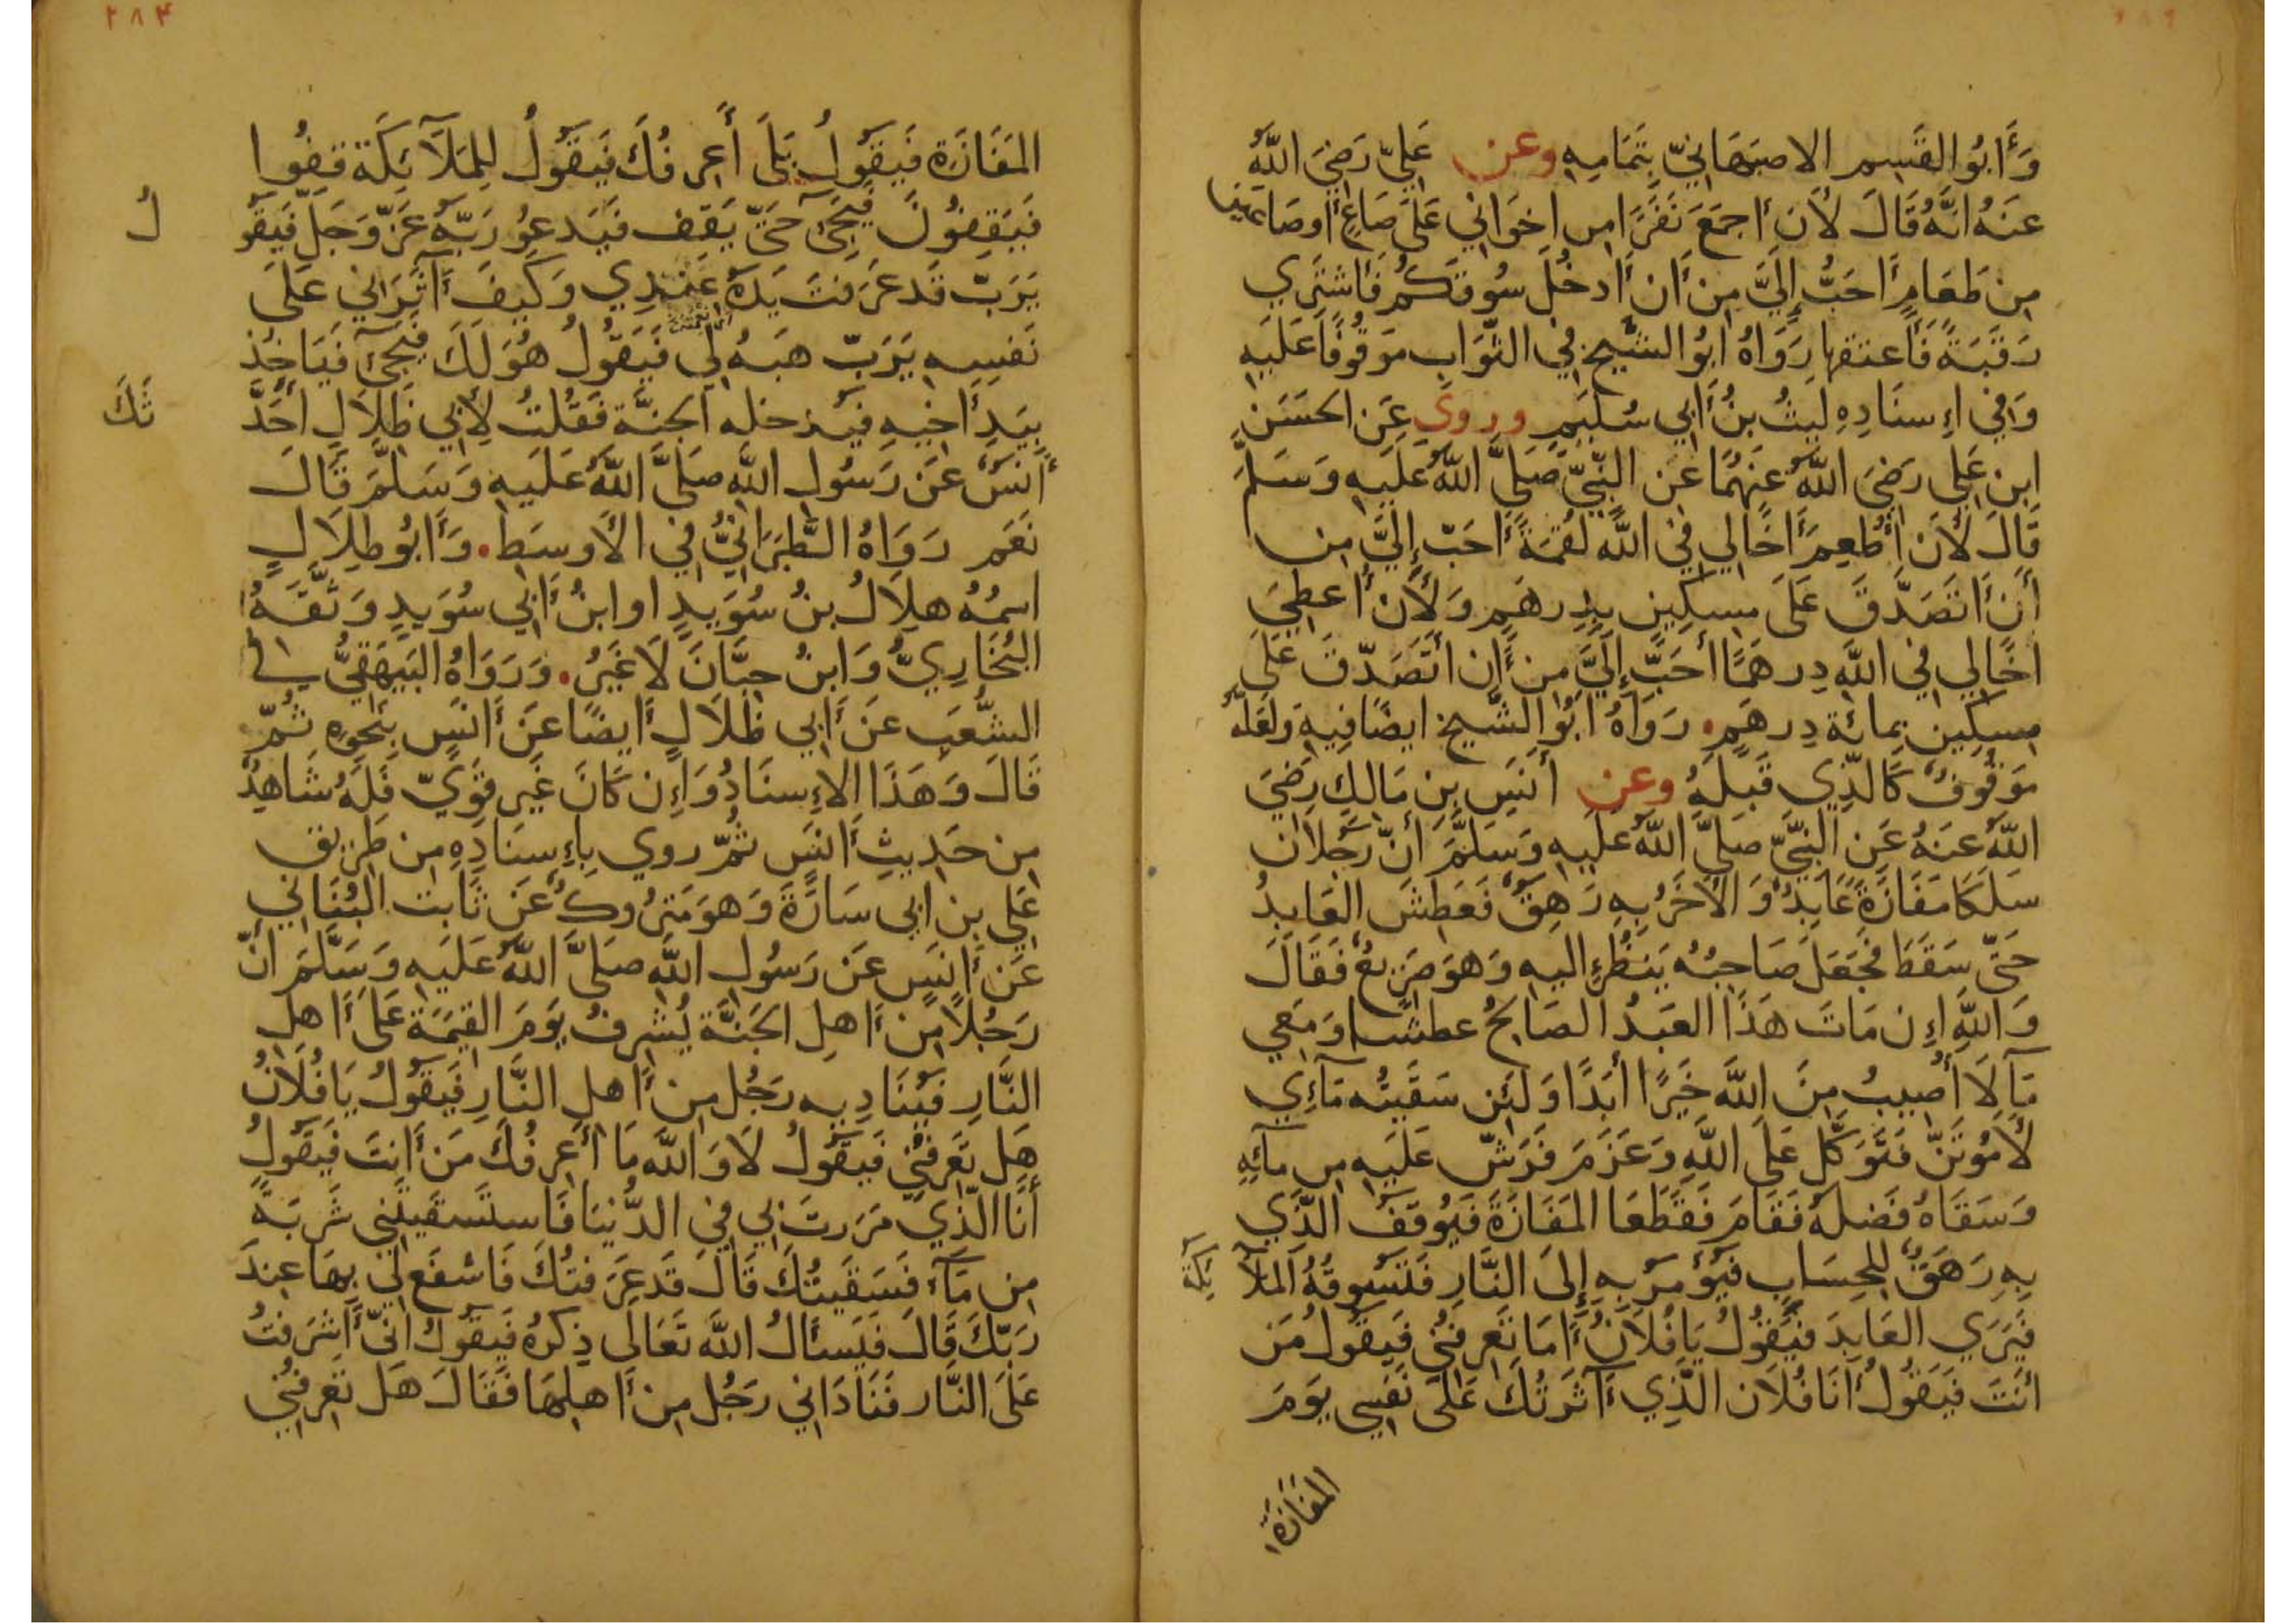 وَأَبُو القَسِم الاصبَهَانِيّ بِتَمَامِهِ وعن عَلِيّ رَضِيَ اللَّهُ
عَنهُ انَّهُ قَالَ لَأَن أَجمَعَ نَفَرًا مِن اِخوَانِي عَلَى صَاعٍ أَو صَاعَينِ
مِن طَعَامٍ أَحَبُّ إِلَيَّ مِن أَن أَدخُلَ سُوقَكُم فَأَشتَرِي
رَقَبَةً فَأَعتقهَا رَوَاهُ ابُو الشَّيخ فِي الثَّوَابِ مَوقُوفًا عَلَيهِ
وَفِي إِسنَادِهِ لَيثُ بنُ أَبِي سُلَيمٍ وروي عَنِ الحَسَنِ
ابنِ عَلِي رَضِيَ اللَّهُ عَنهُمَا عَن النَّبِيِّ صَلَّى اللَّهُ عَلَيهِ وَسَلَّمَ
قَالَ لَأَن أُطعِمَ أَخًا لِي فِي اللَّه لُقمَةً أَحَبّ إِلَيَّ مِن
أَن أَتَصَدَّقَ عَلَى مِسكِينٍ بِدِرهَمٍ وَلَأَن أُعطِيَ
أَخًا لِي فِي اللَّهِ دِرهَمًا أَحَبّ إِلَيَّ مِن أَن أَتَصَدّقَ عَلَى
مِسكِينٍ بِمائَة دِرهَمٍ. رَوَاهُ ابُو الشَّيخ ايضًا فِيهِ وَلَعَلَّهُ
مَوقُوفٌ كَالَّذِي قَبلَهُ وعن أَنَسِ بنِ مَالِكٍ رَضِيَ
اللَّهُ عَنهُ عَنِ النَّبِيِّ صَلَّى اللَّهُ عَلَيهِ وَسَلَّمَ أَنّ رَجُلَان
سَلَكَا مَفَازَةً عَابِدٌ وَالآخَرُ بِهِ رَهَقٌ فَعَطَشَ العَابِدُ
حَتّى سَقَطَ فَجَعَلَ صَاحِبُهُ يَنظُر إِليهِ وَهوَ صَرِيعٌ فَقَالَ
وَاللَّهِ إِن مَاتَ هَذَا العَبدُ الصَالِحُ عطشًا وَمَعِي
مَآ لَا أُصِيبُ مِنَ اللَّه خَيرًا أَبَدًا وَلَئِن سَقَيتُه مَآئِي
لَأَمُوتَنّ فَتَوَكَّل عَلَى اللَّهِ وَعَزَمَ فَرَشّ عَلَيهِ مِن مآئِهِ
وَسَقَاهُ فَضلَهُ فَقَامَ فَقَطَعَا المَفَازَةَ فَيُوقَفُ الَّذِي
بِهِ رَهَقٌ لِلحِسَابِ فَيُؤمَرُ بِهِ إِلَى النَّارِ فَتَسُوقُهُ المَلَآ ئِكَةُ
فَيَرَى العَابِدَ فَيَقُولُ يَا فُلَانُ أَمَا تَعرِفنِي فَيَقُولُ مَن
أَنتَ فَيَقُولُ أَنَا فُلَان الَّذِي ءَآثَرتُكَ عَلَى نَفسِي يَومَ
المَفَازَةِ
٢٨٤
المَفَازَة فَيَقُولُ بَلَى أَعرِفُكَ فَيَقُولُ لِلمَلَآئِكَة قِفُوا
فَيَقِفُونَ فَيَجِيءُ حَتّى يَقِف فَيَدعُو رَبّهُ عَزّ وَجَلّ فَيَقُو لُ
يَرَبّ قَد عَرَفتَ يَدَهُ عِندِي وَكَيفَ أَآثَرَانِي عَلَى
نَفسِهِ يَرَبّ هَبهُ لِي فَيَقُولُ هُوَ لَكَ فَيَجِيءُ فَيَاخُذ
بِيَدِ أَخِيهِ فَيُدخله الجَنَّة فَقُلتُ لِأَبِي ظِلَالٍ أَحَدَّ ثَكَ
أَنَسٌ عَن رَسُولِ اللَّه صَلَّى اللَّهُ عَلَيهِ وَسَلَّمَ قَالَ
نَعَم رَوَاهُ الطَّبَرَانِيُّ فِي الأَوسَطِ. وَأَبُو ظِلَالٍ
اسمُهُ هِلَالُ بنُ سُوَيدٍ او ابنُ أَبِي سُوَيدٍ وَثَّقَهُ
البُخَارِيُّ وَابنُ حِبَّانَ لَا غَيرُ. وَرَوَاهُ البَيهَقِيُّ فِي
الشُّعَبِ عَن أَبِي ظلَالٍ أَيضًا عَن أَنَسٍ بِنَحوِهِ ثُمّ
قَالَ وَهَذَا الإِسنَادُ وَإِن كَانَ غَير قَوِيّ فَلَهُ شَاهِدٌ
مِن حَدِيثِ أَنَسٍ ثُمّ روي بِإِسنَادِهِ مِن طَرِيق
عَلِي بن ابِي سَارَةَ وَهوَ مَترُوكٌ عَن ثَابت البُنَانِي
عَن أَنَسٍ عَن رَسُولِ اللَّه صَلَّى اللَّهُ عَلَيهِ وَسَلَّمَ أَنّ
رَجُلًا مِن أَهلِ الجَنَّة يُشرِفُ يَومَ القِيمَة عَلَى أَهلِ
النَّارِ فَيُنَادِيهِ رَجُل مِن أَهلِ النَّارِ فَيَقُولُ يَا فُلَانُ
هَل تَعرِفنِي فَيَقُولُ لَا وَاللَّه مَا أَعرِفُكَ مَن أَنتَ فَيَقُولُ
أَنَا الَّذِي مَرَرتَ بِي فِي الدُّنيَا فَاستَسقَيتَنِي شَربَةً
مِن مَآءٍ فَسَقَيتُكَ قَالَ قَد عَرَفتُكَ فَاشفَع لِي بِهَا عِندَ
رَبّكَ قَالَ فَيَسئَالُ اللَّهَ تَعَالَى ذِكرُهُ فَيَقُولُ انّي أَشرَفتُ
عَلَى النَّار فَنَادَانِي رَجُل مِن أَهلِهَا فَقَالَ هَل تَعرِفنِي